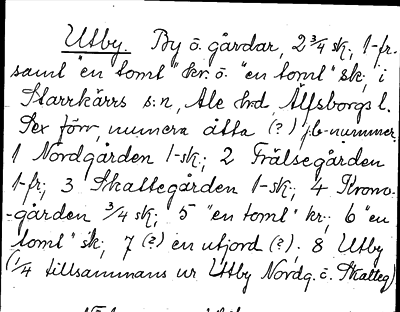 Utby. By o. gårdar, 2 3/4 sk, 1-fr.
samt "en tomt" kr. o. "en tomt" sk, i
Starrkärrs s:n, Ale hd, Älfsborgs l.
Sex förv, numera åtta (?) jb-nummer.
1 Nordgården 1-sk; 2 Frälsegården
1-fr; 3 Skattegården 1-sk; 4 Krono-
-gården 3/4 sk; 5 "en tomt" kr; 6 "en
tomt" sk; 7 (?) en utjord (?); 8 Utby
(1/4 tillsammans ur Utby Nordg. o. Skatteg)